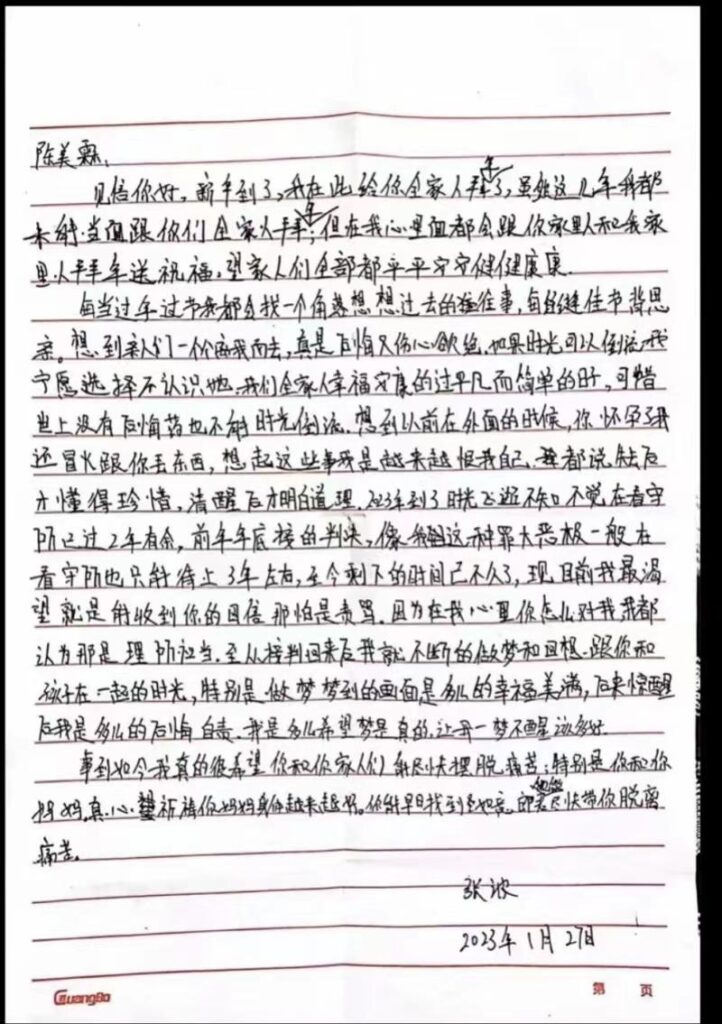 陈美霖:
见信你好，新年到了，我在此给你全家人拜年了，虽然这几年我都
未能当面跟你们全家人拜年；但在我心里面都会跟你家里人和我家
里人拜年送祝福，望家人们全部都平平安安健健康康。
每当过年过节我都会找一个角落想想过去的种往事，每逢佳节背思
亲。想到亲人们一个个离我而去，真是后悔又伤心欲绝。如果时光可以倒流我
宁愿选择不认识她。我们全家人幸福安康的过平凡而简单的日子，可惜
世上没有后悔药也不能时光倒流。想到以前在外面的时候，你怀孕了我
还冒火跟你丢东西，想起这些事我是越来越恨我自己。都说失去后
才懂得珍惜，清醒后才明白道理。2023年到了时光飞逝不知不觉在看守
所已过2年有余，前年年底接的判决，像我这种罪大恶极一般在
看守所也只能待上3年左右，至今剩下的时间已不久了，现目前我最渴
望就是能收到你的回信那怕是责骂。因为在我心里你怎么对我我都
认为那是理所应当。至从接判回来后我就不断的做梦和回想跟你和
孩子在一起的时光，特别是做梦梦到的画面是多么的幸福美满，后来惊醒
后我是多么的后悔自责。我是多么希望梦是真的，让我一梦不醒该多好。
事到如今我真的很希望你和你家人们能尽快摆脱痛苦；特别是你和你
妈妈。真心祈祷你妈妈身体越来越好。你能早日找到如意郎君他能尽快带你脱离
痛苦。
张波
2023年1月27日
GuangBo
第 页